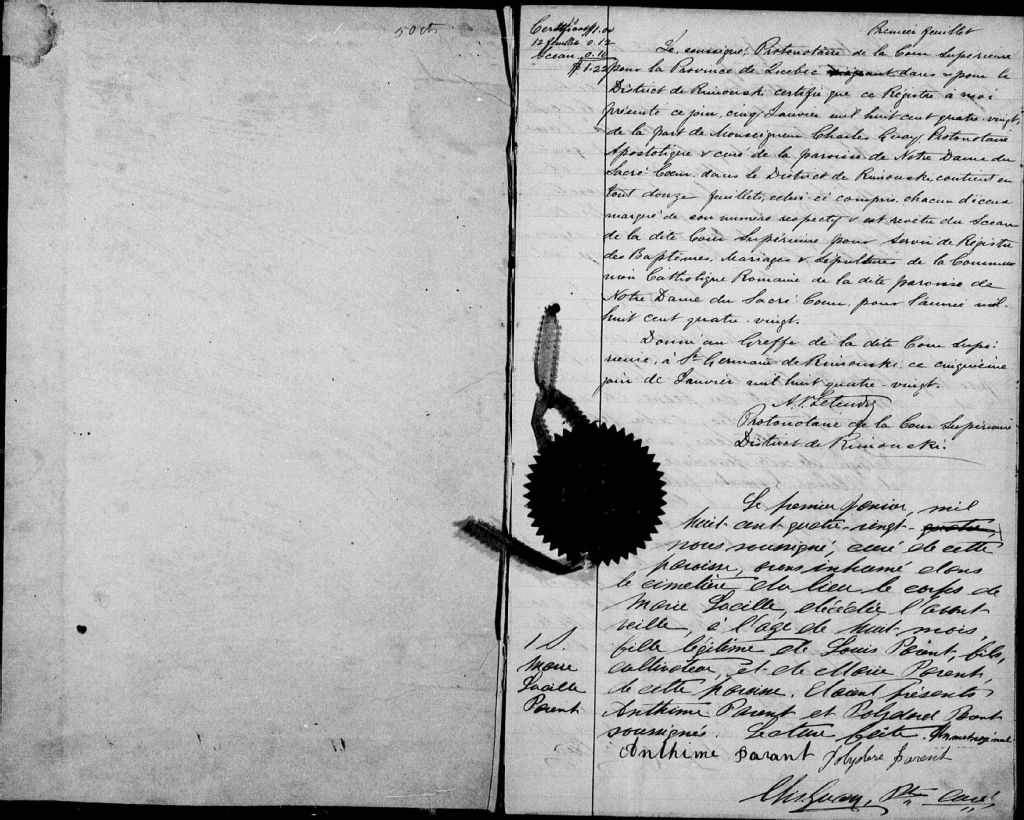 50 cts
Certificat $1.00
12 feuillets 0.12
Sceau 0.10
$1.22
Premier feuillet
Je, soussigné, Protonotaire de la Cour Supérieure
pour la Province de Quebec dans & pour le
District de Rimouski certifie que ce Régistre à moi
présenté ce jour, cinq Janvier mil huit cent quatre-vingt,
de la part de Monseigneur Charles Guay, Protonotaire
Apostolique & curé de la paroisse de Notre Dame du
Sacré Cœur, dans le District de Rimouski, contient en
tout douze feuillets, celui ci compris, chacun d'iceux
marqué de son numéro respectif & est revêtu du Sceau
de la dite Cour Supérieure pour servir de Régistre
des Baptêmes, Mariages & Sépultures de la Commu-
nion Catholique Romaine de la dite paroisse de
Notre Dame du Sacré Cœur, pour l'année mil-
huit cent quatre-vingt.
Donné au Greffe de la dite Cour Supé-
rieure, à St Germain de Rimouski, ce cinquième
jour de Janvier mil huit quatre-vingt
Letendre
Protonotaire de la Cour Supérieure
District de Rimouski.
Le premier janvier, mil
huit cent quatre-vingt-quatre,
nous soussigné, curé de cette
paroisse, avons inhumé dans
le cimetière du lieu le corps de
Marie Lucille, décédée l'avant
veille, à l'âge de huit mois,
fille légitime de Louis Parent, fils,
cultivateur, et de Marie Parent,
de cette paroisse. Etaient présents
Anthime Parent et Polydore Parent
soussignés. Lecture faite.
1 S.
Marie
Lucille
Parent
Anthime Parant Polydore Parent
Chs Guay, Ptre curé